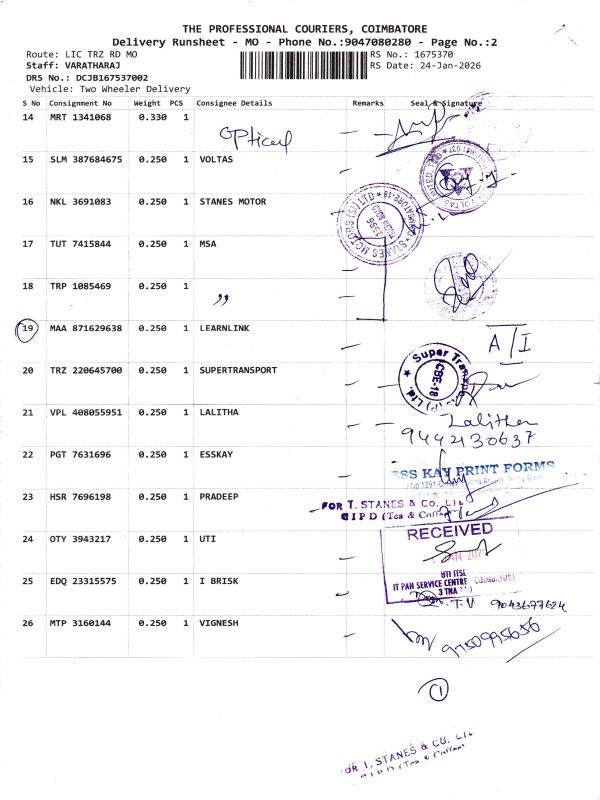 THE PROFESSIONAL COURIERS, COIMBATORE
Delivery Runsheet - MO - Phone No.:9047080280 - Page No.:2
Route: LIC TRZ RD MO
RS No.: 1675370
Staff: VARATHARAJ
RS Date: 24-Jan-2026
DRS No.: DCJB167537002
Vehicle: Two Wheeler Delivery
S No Consignment No Weight PCS Consignee Details Remarks Seal & Signature
14 MRT 1341068 0.330 1
optical
15 SLM 387684675 0.250 1 VOLTAS
16 NKL 3691083 0.250 1 STANES MOTOR
17 TUT 7415844 0.250 1 MSA
18 TRP 1085469 0.250 1 ,,
19 MAA 871629638 0.250 1 LEARNLINK
A/I
20 TRZ 220645700 0.250 1 SUPERTRANSPORT
Super
CBE-18
(P) Ltd.
21 VPL 408055951 0.250 1 LALITHA
Lalitha
9442130637
22 PGT 7631696 0.250 1 ESSKAY
ESS KAY PRINT FORMS
23 HSR 7696198 0.250 1 PRADEEP
FOR T. STANES & Co.
CIPD (Tea & Coffee)
24 OTY 3943217 0.250 1 UTI
RECEIVED
JAN
UTI ITSL
IT PAN SERVICE CENTRE
25 EDQ 23315575 0.250 1 I BRISK
T.V 9043677624
26 MTP 3160144 0.250 1 VIGNESH
9750995656
1
T. STANES & CO.
CIPD (Tea & Coffee)